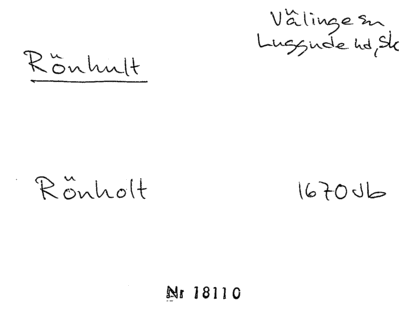 Välinge sn
Luggude hd, Sk
Rönhult
Rönholt 1670 Jb
Nr 18110